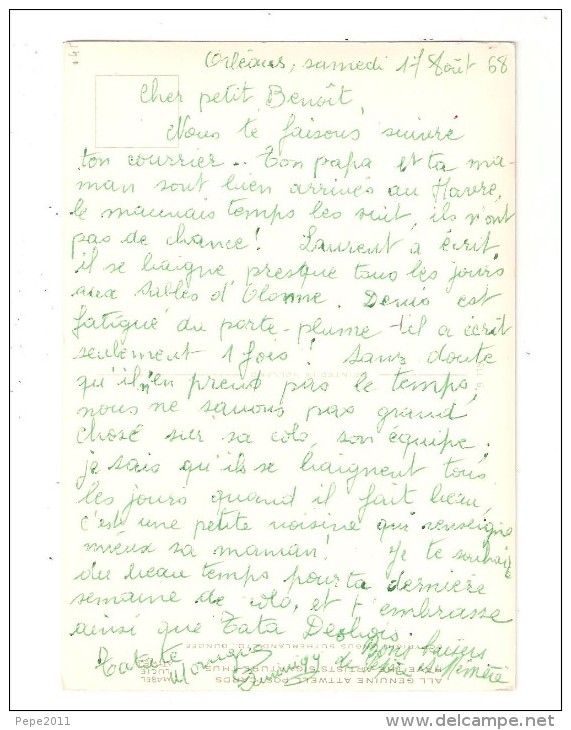 Orléans, samedi 17 Août 68
Cher petit Benoît,
Nous te faisons suivre
ton courrier.. Ton papa et ta ma-
man sont bien arrivés au Havre,
le mauvais temps les suit, ils n'ont
pas de chance! Laurent a écrit,
il se baigne presque tous les jours
aux Sables d'Olonne. Denis est
fatigué du porte-plume - il a écrit
seulement 1 fois! Sans doute
qu'il n'en prend pas le temps,
nous ne savons pas grand
chose sur sa colo, son équipe.
je sais qu'ils se baignent tous
les jours quand il fait beau,
c'est une petite voisine qui renseigne
mieux sa maman! Je te souhaite
du beau temps pour ta dernière
semaine de colo, et t'embrasse
ainsi que Tata
Bons baisers
Tatate
de Mémère
ALL GENUINE ATTWELL POSTCARDS
MABEL
LUCIE
Pepe2011
delcampe.net